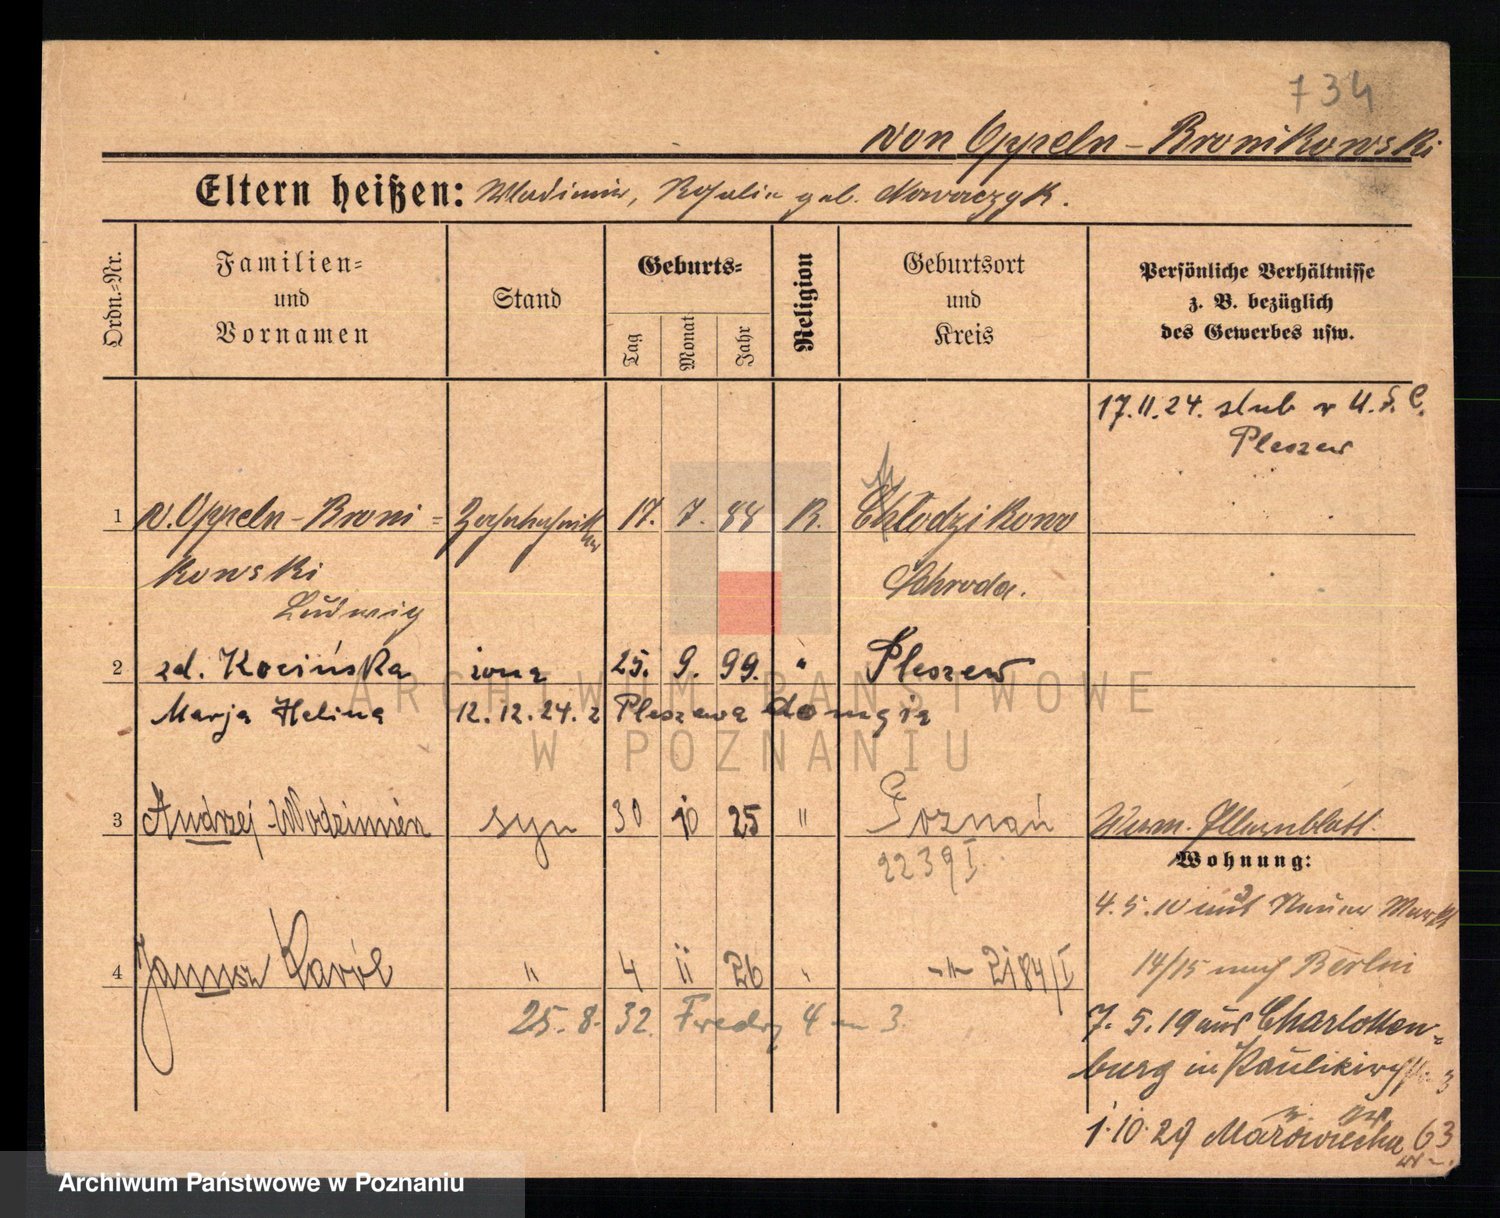 734
von Oppeln-Bronikowski
Eltern heißen: Wladimir, Rosalie geb. Nowaczyk.
Ordn.-Nr.
Familien- und Vornamen
Stand
Geburts-
Tag
Monat
Jahr
Religion
Geburtsort und Kreis
Persönliche Verhältnisse z. B. bezüglich des Gewerbes usw.
17.11.24. slub w U.S.C.
Pleszew
1 v. Oppeln-Broni- 17. 7. 88 R. Chlodzikowo
kowski Schroda.
Ludwig
2 zd. Kocińska żona 25. 9. 99. " Pleszew
Marja Helena 12.12.24. z Pleszewa do męża
3 Andrzej Włodzimierz syn 30 10 25 " Poznań
2239 I
Wohnung:
4.5.10 aus Neuer Markt
4 Janusz Karól " 4 11 26 " -"- 2184/I
14/15 nach Berlin
25.8.32. Fredry 4 m 3.
7.5.19 aus Charlotten-
burg in Paulikirchstr. 3
1.10.29 63
ARCHIWUM PAŃSTWOWE
W POZNANIU
Archiwum Państwowe w Poznaniu